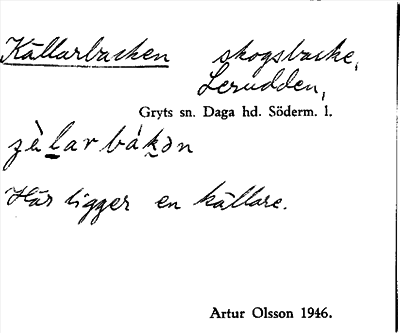 Källarbacken skogsbacke,
Lerudden,
Gryts sn. Daga hd. Söderm. l.
Här ligger en källare.
Artur Olsson 1946.